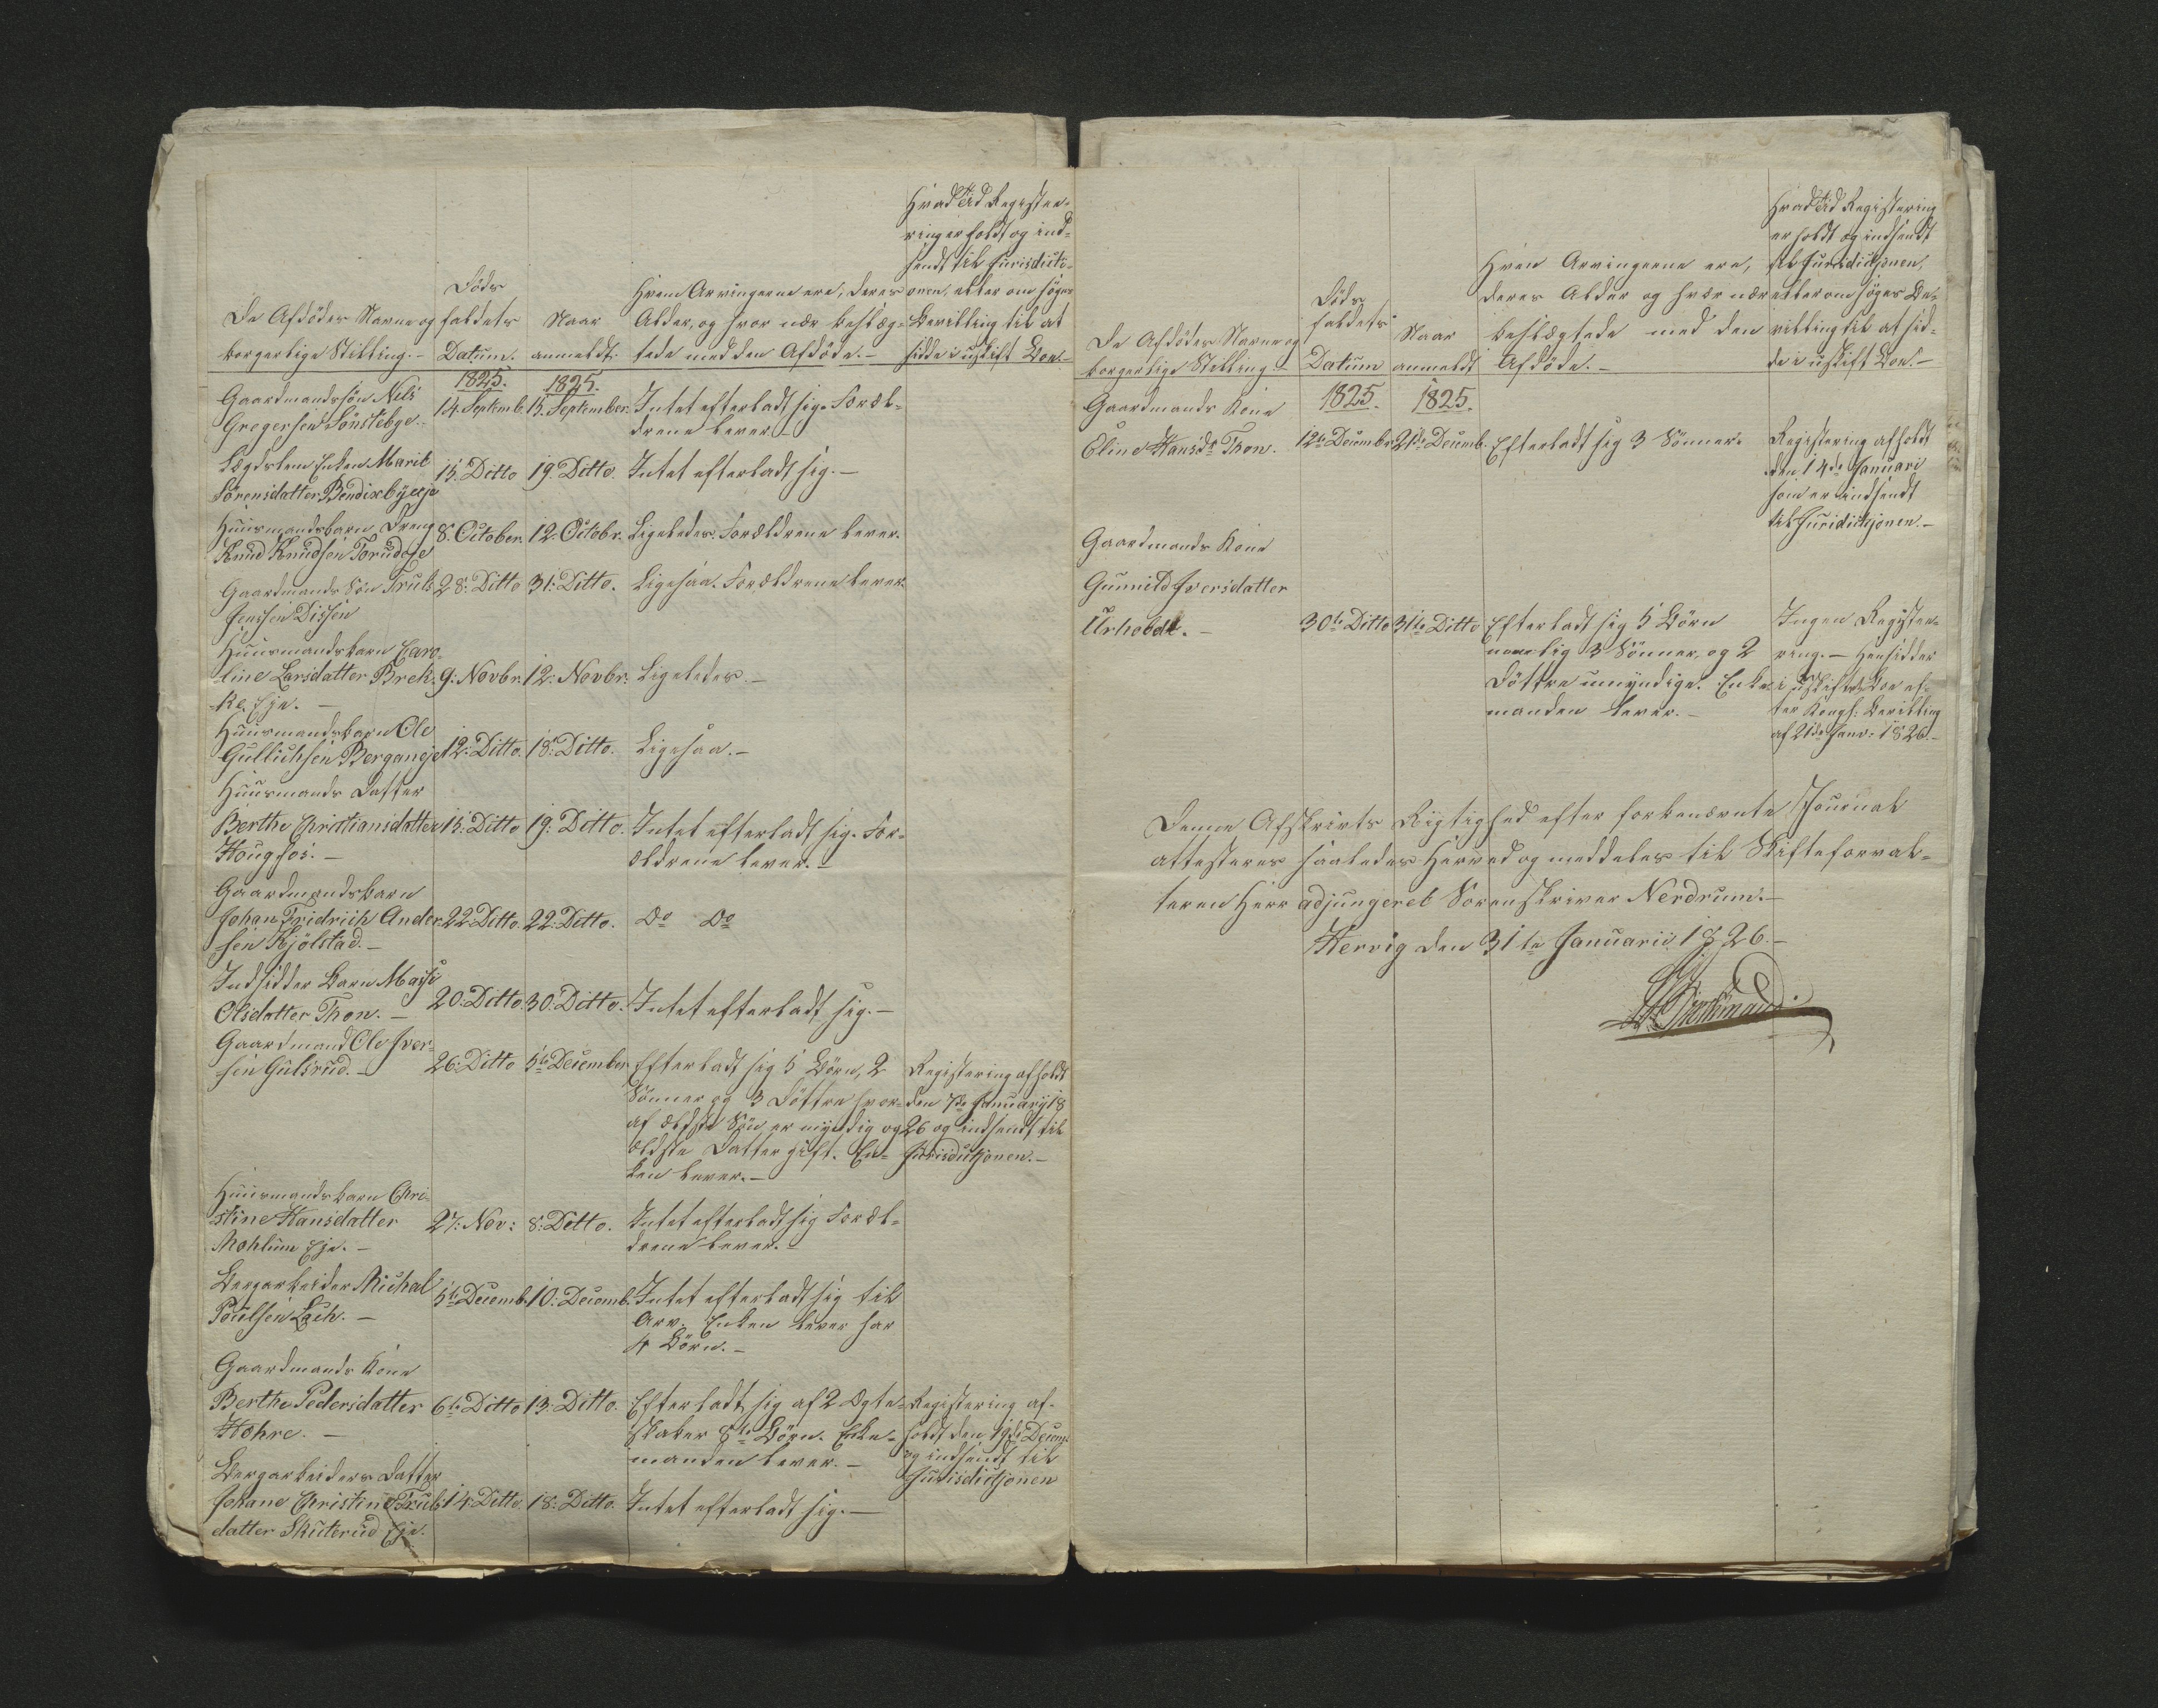 Hvad Tid Registe-
ring er holdt og ind-
sendt til Jurisdicti-
onen, eller om søges
Bevilling til at
sidde i uskift Boe.-
De Afdödes Navne og
borgerlige Stilling.-
Döds
faldets
Datum.
Naar
anmeldt.
Hvem Arvingerne ere, deres
Alder, og hvor nær beslæg-
tede med den Afdöde.-
1825.
1825.
Gaardmandssön Nils
Gregersen Sönstebye.
14. Septemb.
15. September.
Intet efterladt sig. Foræl-
drene lever.-
Lægdslem Enken Marit
Sörensdatter Bendixbyeeje
15. Ditto
19. Ditto.
Intet efterladt sig.-
Huusmandsbarn Dreng
Knud Knudsen Torudeje
8. October.
12. Octobr.
Ligeledes. Forældrene lever.
Gaardmands Sön Truls
Jenssen Dissen
28: Ditto
31: Ditto.
Ligesaa. Forældrene lever.
Huusmandsbarn Caro-
line Larsdatter Brek-
ke Eje.-
9: Novbr.
12: Novbr.
Ligeledes.-
Huusmandsbarn Ole
Gullichsen Bergangeje
12: Ditto.
18: Ditto.
Ligesaa.-
Huusmands Datter
Berthe Christiansdatter
Hougfos.-
15: Ditto
19: Ditto.
Intet efterladt sig. For-
ældrene lever.-
Gaardmandsbarn
Johan Fridrich Ander-
sen Kjölstad.-
22: Ditto.
22: Ditto.
Do Do
Indsidder Barn Mari
Olsdatter Thon.-
20: Ditto.
30: Ditto.
Intet efterladt sig.-
Gaardmand Ole Iver-
sen Gulsrud.-
26: Ditto
5te December
Efterladt sig 5 Börn, 2
Sönner og 3 Döttre hvor-
af ældste Sön er myndig og
ældste Datter gift. En-
ken lever.-
Registering afholdt
den 7de January 18
26 og indsendt til
Jurisdictjonen.-
Huusmandsbarn Chri-
stine Hansdatter
Mohlum Eje.-
27: Nov:
8: Ditto.
Intet efterladt sig Foræl-
drene lever.-
Bergarbeider Michal
Poulsen Lach.-
5te Decemb.
10: Decemb.
Intet efterladt sig til
Arv. Enken lever har
4 Börn.-
Gaardmands Kone
Berthe Pedersdatter
Hohre.-
6te Ditto
13: Ditto.
Efterladt sig af 2 Ægte-
skaber 8te Börn. Enke-
manden lever.-
Registering af-
holdt den 19de Decem.
og indsendt til
Jurisdictjonen
Bergarbeiders Datter
Johane Christine Truls-
datter Skuterud Eje.
14: Ditto.
18: Ditto.
Intet efterladt sig.-
De Afdödes Navne og
borgerlige Stilling.-
Döds
faldets
Datum
Naar
anmeldt
Hvem Arvingerne ere,
deres Alder og hvor nær
beslægtede med den
Afdöde.-
Hvad Tid Registering
er holdt og indsendt
til Jurisdictjonen,
eller om söges Be-
villing til at sid-
de i uskift Boe.-
1825.
1825.
Gaardmands Kone
Eline Hansdr Thon.
12te Decembr.
21de Decemb.
Efterladt sig 3 Sönner.
Registering afholdt
den 14de Januari
som er indsendt
til Juridictjonen.-
Gaardmands Kone
Gunnild Iversdatter
Urholdt.-
30te Ditto
31te Ditto
Efterladt sig 5 Börn
nemlig 3 Sönner, og 2
Döttre umyndige. Enke-
manden lever.-
Ingen Registe-
ring.- Hensidder
i uskiftet Boe ef-
ter Kongl: Bevilling
af 21de Janv: 1826.-
Denne Afskrivts Rigtighed efter forbenævnte Journal
attesteres saaledes herved og meddeles til Skifteforval-
teren Herr adjungeret Sorenskriver Nerdrum.-
Hervig den 31te Januarii 1826.-